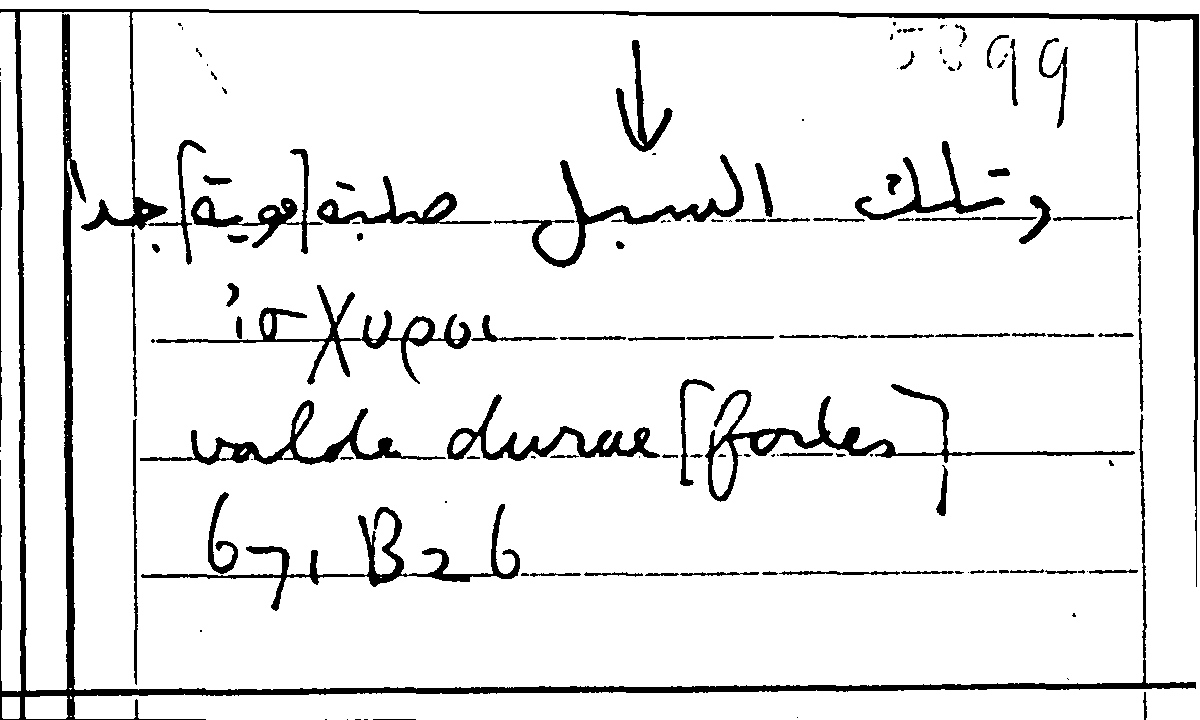 5899
↓
وتلك السبل صلبة [قوية] جدا
ἰσχυροι
valde durae [fortes]
671 B26